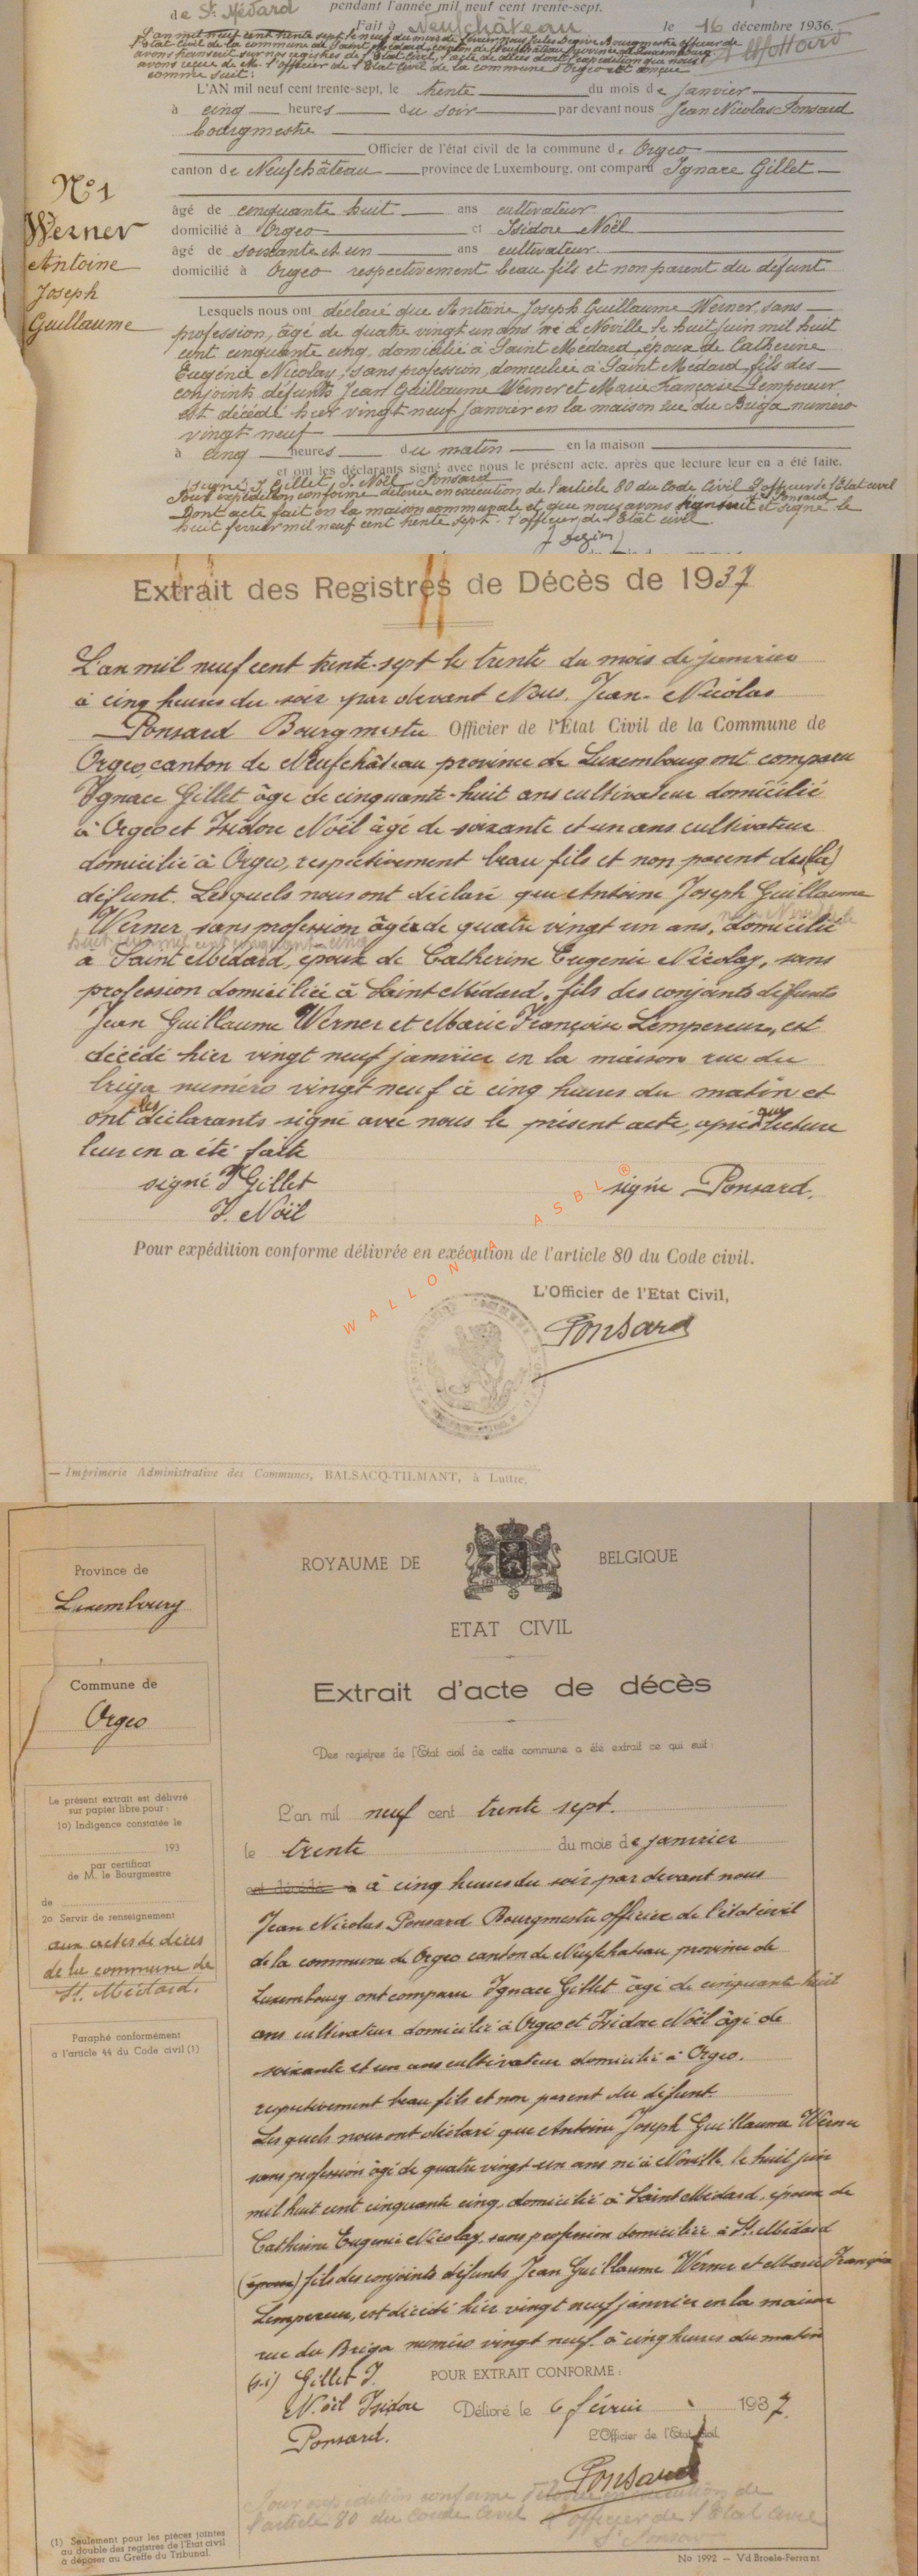 de St. Médard pendant l'année mil neuf cent trente-sept.
Fait à Neufchâteau le 16 décembre 1936.
L'an mil neuf cent trente sept le neuf du mois de
l'Etat civil de la commune de Saint Médard, canton de Neufchâteau
avons transcrit sur nos registres de l'Etat Civil, l'acte de décès dont l'expédition que nous
avons reçue de M. l'officier de l'Etat Civil de la commune d'Orgeo est conçue
comme suit:
L'AN mil neuf cent trente-sept, le trente du mois de janvier
à cinq heures du soir par devant nous Jean Nicolas Ponsard
bourgmestre
Officier de l'état civil de la commune de Orgeo
canton de Neufchâteau province de Luxembourg, ont comparu Ignace Gillet
N° 1
Werner
Antoine
Joseph
Guillaume
âgé de cinquante huit ans cultivateur
domicilié à Orgeo et Isidore Noël
âgé de soixante et un ans cultivateur
domicilié à Orgeo respectivement beau fils et non parent du défunt
Lesquels nous ont déclaré que Antoine Joseph Guillaume Werner, sans
profession, âgé de quatre vingt un ans né à Noville le huit juin mil huit
cent cinquante cinq, domicilié à Saint Médard, époux de Catherine
Eugénie Nicolay, sans profession, domiciliée à Saint Médard, fils des
conjoints défunts Jean Guillaume Werner et Marie Françoise Lempereur
est décédé hier vingt neuf janvier en la maison rue du Briga numéro
vingt neuf
à cinq heures du matin en la maison
et ont les déclarants signé avec nous le présent acte, après que lecture leur en a été faite.
signé I. Gillet, I. Noël, Ponsard
Pour expédition conforme délivrée en exécution de l'article 80 du Code Civil l'officier de l'Etat civil
s. Ponsard
Dont acte fait en la maison communale et que nous avons transcrit et signé le
huit février mil neuf cent trente sept. l'officier de l'Etat civil
Extrait des Registres de Décès de 1937
L'an mil neuf cent trente-sept le trente du mois de janvier
à cinq heures du soir par devant Nous Jean-Nicolas
Ponsard Bourgmestre Officier de l'Etat Civil de la Commune de
Orgeo, canton de Neufchâteau province de Luxembourg ont comparu
Ignace Gillet âge de cinquante-huit ans cultivateur domicilié
à Orgeo et Isidore Noël âgé de soixante et un ans cultivateur
domicilié à Orgeo, respectivement beau fils et non parent des(la)
défunt. Lesquels nous ont déclaré que Antoine Joseph Guillaume
Werner, sans profession âgée de quatre vingt un ans, domicilié
huit juin mil cent cinquante cinq
à Saint Médard, époux de Catherine Eugenie Nicolay, sans
profession domiciliée à Saint Médard, fils des conjoints défunts
Jean Guillaume Werner et Marie Françoise Lempereur, est
décédé hier vingt neuf janvier en la maison rue du
briga numéro vingt neuf à cinq heures du matin et
ont les déclarants signé avec nous le présent acte, après que lecture
leur en a été faite
signé I Gillet signé Ponsard.
I. Noël
WALLONIA ASBL®
Pour expédition conforme délivrée en exécution de l'article 80 du Code civil.
L'Officier de l'Etat Civil,
Ponsard
— Imprimerie Administrative des Communes, BALSACQ-TILMANT, à Luttre.
Province de
Luxembourg
Commune de
Orgeo
Le présent extrait est délivré
sur papier libre pour :
1o) Indigence constatée le
193
par certificat
de M. le Bourgmestre
de
2o Servir de renseignement
aux actes de décès
de la commune de
St. Médard.
Paraphé conformément
a l'article 44 du Code civil (1)
ROYAUME DE BELGIQUE
ETAT CIVIL
Extrait d'acte de décès
Des registres de l'Etat civil de cette commune a été extrait ce qui suit :
L'an mil neuf cent trente sept.
le trente du mois de janvier
est décédé à à cinq heures du soir par devant nous
Jean Nicolas Ponsard Bourgmestre officier de l'état civil
de la commune de Orgeo canton de Neufchateau province de
Luxembourg ont comparu Ignace Gillet âgé de cinquante huit
ans cultivateur domicilié à Orgeo et Isidore Noël âgé de
soixante et un ans cultivateur domicilié à Orgeo.
respectivement beau fils et non parent du défunt.
Lesquels nous ont déclaré que Antoine Joseph Guillaume Werner
sans profession âgé de quatre vingt un ans né à Noville le huit juin
mil huit cent cinquante cinq, domicilié à Saint Médard, époux de
Catherine Eugenie Nicolay, sans profession domiciliée à St. Médard
(époux) fils des conjoints défunts Jean Guillaume Werner et Marie Françoise
Lempereur, est décédé hier vingt neuf janvier en la maison
rue du Briga numéro vingt neuf à cinq heures du matin
(s.i) Gillet I. POUR EXTRAIT CONFORME :
Noël Isidore Délivré le 6 février 1937.
Ponsard. L'Officier de l'Etat Civil,
Ponsard
Pour expédition conforme délivrée en exécution de
l'article 80 du Code Civil l'officier de l'Etat Civil
s. Ponsard
(1) Seulement pour les pièces jointes
au double des registres de l'Etat civil
à déposer au Greffe du Tribunal.
No 1992 — Vd Broele-Ferrant